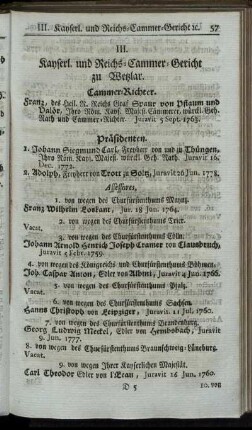 III. Kayserl. und Reichs-Cammer-Gericht ꝛc. 57
III.
Kayserl. und Reichs-Cammer-Gericht
zu Wetzlar.
Cammer-Richter.
Franz, des Heil. R. Reichs Graf Spaur von Pflaum und
Valör, Ihro Röm. Kays. Majest. Cämmerer, würkl. Geh.
Rath und Cammer-Richter. Juravit 5 Sept. 1763.
Präsidenten.
1. Johann Siegmund Carl, Freyherr von und zu Thüngen,
Ihro Röm. Kays. Majest. würkl. Geh. Rath. Juravit 16.
Dec. 1772.
2. Adolph, Freyherr von Trott zu Solz, Juravit 26 Jun. 1778.
Assessores,
1. von wegen des Churfürstenthums Mayntz.
Franz Wilhelm Jur. 18 Jun. 1764.
2. von wegen des Churfürstenthums Trier.
Vacat.
3. von wegen des Churfürstenthums Cölln.
Johann Arnold Henrich Joseph Cramer von Claudbruch,
Juravit 5 1749.
4. von wegen des Königreichs und Churfürstenthums Böhmen.
Joh. Caspar Anton, Edler von Albini, Juravit 1766.
5. von wegen des Churfürstenthums Pfalz.
Vacat.
6. von wegen des Churfürstenthums Sachsen.
Hanns Christoph von Leipziger, Juravit 11 Jul. 1760.
7. von wegen des Churfürstenthums Brandenburg.
Georg Ludwig Meckel, Edler von Hemsbach, Juravit
9. Jun. 1777.
8. von wegen des Churfürstenthums Braunschweig-Lüneburg.
Vacat.
9. von wegen Ihrer Kayserlichen Majestät.
Carl Theodor Edler von l'Eau, Juravit 16 Jun. 1760.
D 5 10. von